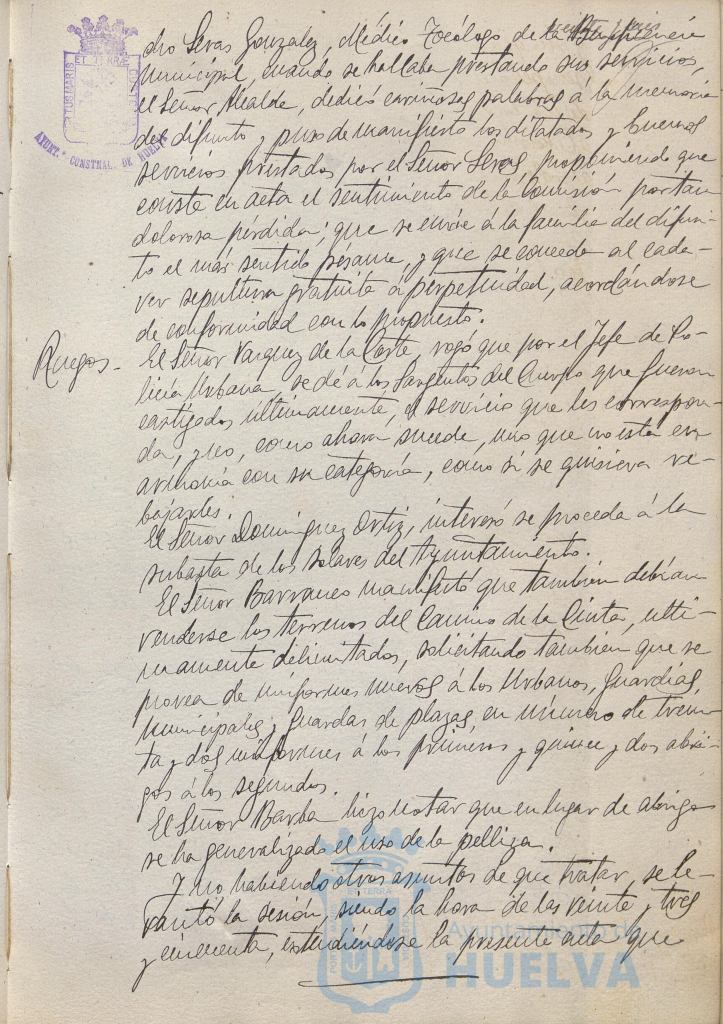 veinte y seis
dro Seras Gonzalez, Médico Tocólogo de la Beneficencia
Municipal, cuando se hallaba prestando sus servicios,
el Señor Alcalde, dedicó cariñosas palabras á la memoria
del difunto y puso de manifiesto los dilatados y buenos
servicios prestados por el Señor Seras, proponiendo que
conste en acta el sentimiento de la Comisión por tan
dolorosa pérdida; que se envíe á la familia del difun-
to el más sentido pésame, y que se conceda al cadá-
ver sepultura gratuita á perpetuidad, acordándose
de conformidad con lo propuesto.
Ruegos.- El Señor Vazquez de la Corte, rogó que por el Jefe de Po-
licía Urbana, se dé á los Sargentos del Cuerpo que fueron
castigados ultimamente, el servicio que les correspon-
da, y no, como ahora sucede, uno que no está en
armonía con su categoría, como si se quisiera re-
bajarles.
El Señor Dominguez Ortiz, interesó se proceda á la
subasta de los solares del Ayuntamiento.
El Señor Barranco manifestó que también debían
venderse los terrenos del Camino de la Cinta, ulti-
mamente delimitados, solicitando también que se
provea de uniformes nuevos á los Urbanos, Guardias,
Municipales y Guardas de plazas, en número de trein-
ta y dos uniformes á los primeros y quince y dos abri-
gos á los segundos.
El Señor Barba hizo notar que en lugar de abrigo
se ha generalizado el uso de la pelliza.
Y no habiendo otros asuntos de que tratar, se le-
vantó la sesión, siendo la hora de las veinte y tres
y cincuenta, extendiéndose la presente acta que
AYUNT.º CONSTNAL. DE HUELVA
Ayuntamiento de
HUELVA